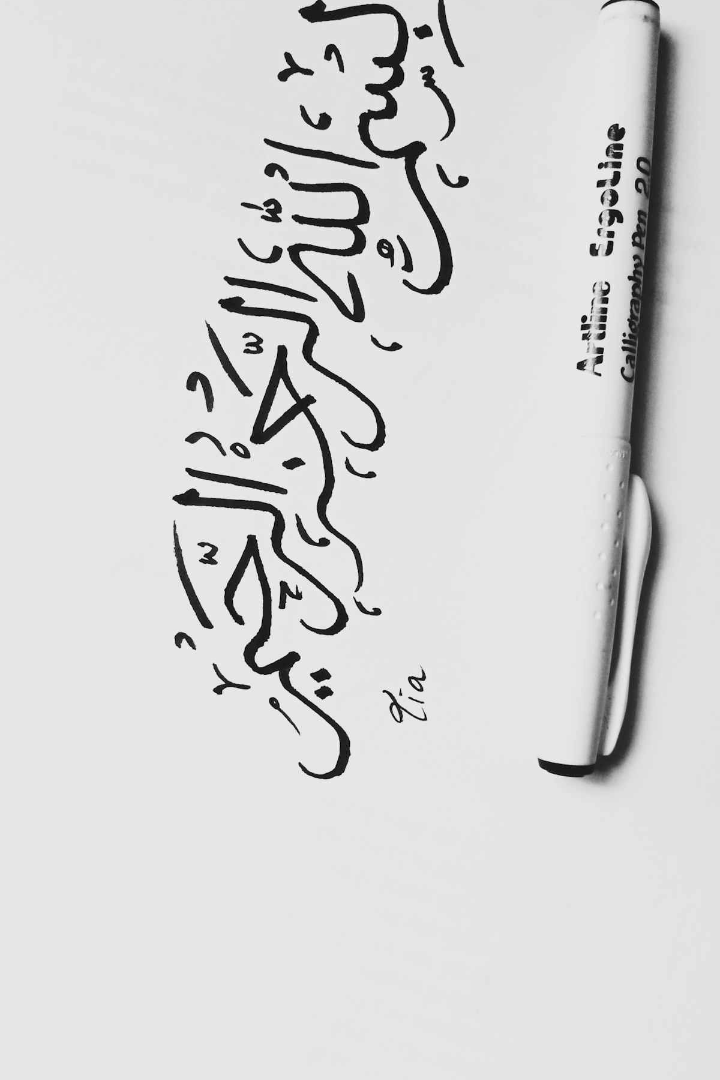 بِسْمِ اللهِ الرَّحْمٰنِ الرَّحِيْمِ
Artline ErgoLine
Calligraphy Pen 2.0